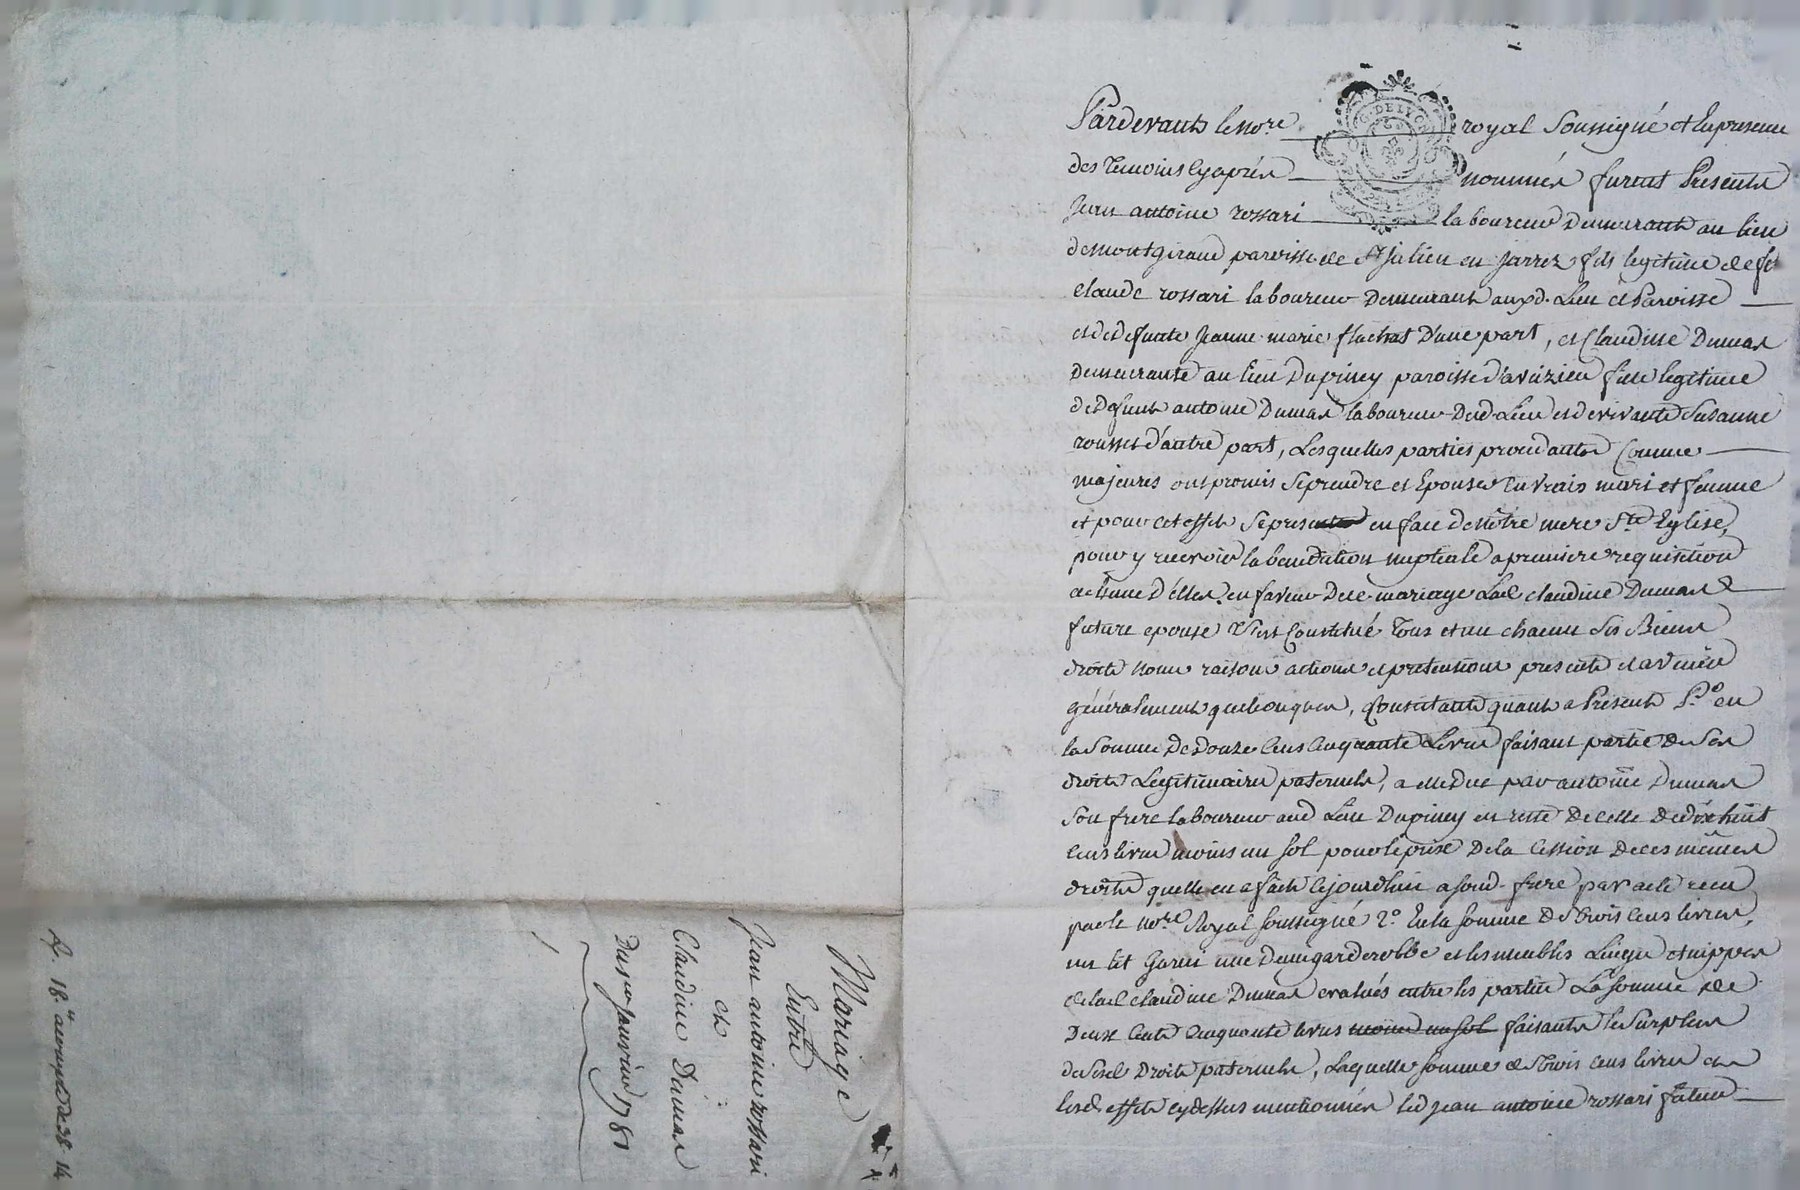 Pardevant le no.re royal soussigné et En presence
des temoins cy après nommés furent Presents
Jean antoine rossari laboureur Demeurant au lieu
de montgiraud paroisse de St julien en jarrez fils legitime de feu
claude rossari laboureur Demeurant auxd. Lieu et Paroisse
et de defunte Jeanne marie flachat D'une part, et Claudine Dumas
Demeurante au lieu Dupiney paroisse d'avaizieu fille legitime
de Defunt antoine Dumas laboureur Dud. Lieu et de vivante Susanne
rousset d'autre part, Lesquelles parties procedantes Comme
majeures ont promis se prendre et Epouser En vrais mari et femme
et pour cet effet se presenter en face de nôtre mere Ste Eglise,
pour y recevoir la benediction nuptiale a premiere requisition
de l'une d'elles. en faveur De ce mariage Lad. claudine Dumas
future epouse s'est Constitué tous et un chacun ses Biens
droits noms raisons actions et pretentions presents et avenir
généralement quelconques, Consistants quant a Present P.o en
la Somme De Douze Cens Cinquante Livres faisant partie De Ses
droits Legitimaires paternels, a elle Dus par antoine Dumas
Son frere laboureur aud. Lieu Dupiney en reste De celle De dix huit
Cens livres moins un sol pour le prix De la Cession De ces mêmes
droits quelle en a fait Cejourdhui a sond. frere par acte recu
par le no.re Royal soussigné 2.o En la somme De trois Cens livres,
un lit Garni une Demi garderobbe et les meubles Linges et nippes
de lad. claudine Dumas evalués entre les parties La somme de
Deux Cents Cinquante livres moins un sol faisants le Surplus
de Sesd. Droits paternels, Laquelle somme de trois Cens livres et
lesd. effets cydessus mentionnés led. jean antoine rossari futur
Mariage
Entre
Jean antoine rossari
et
Claudine Dumas
Du janvier 1781